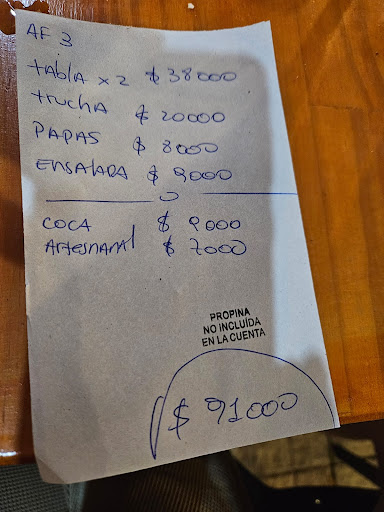 AF 3
tAblA x 2 $ 38000
trucha $ 20000
PAPAS $ 8000
ENSALADA $ 9000
COCA $ 9000
Artesanal $ 7000
PROPINA
NO INCLUÍDA
EN LA CUENTA
$ 91000